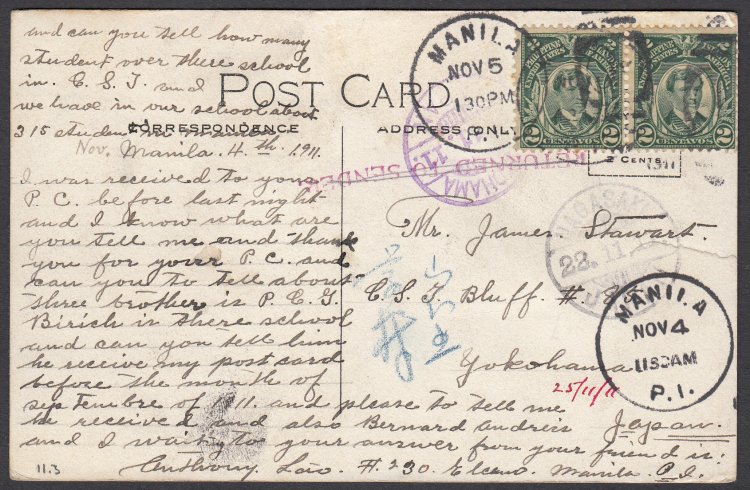 and can you tell how many
student over there school
in. C. S. J. and
we have in our school about
315 student
POST CARD
CORRESPONDENCE
ADDRESS ONLY
Nov. Manila. 4th. 1911.
I was received to your
P. C. before last night
and I know what are
you tell me and thank
you for your P. C. and
can you to tell about
three brother is P. C. G.
Birich is there school
and can you tell him
he receive my post card
before the month of
septembre of 1911. and please to tell me
he received and also Bernard Andress
and I waiting to your answer from your friend is:
Anthony Lao. # 230. Elcano. Manila P. I.
11.3
MANILA
NOV 5
130PM
P.I.
2 CENTAVOS 2
2 CENTAVOS 2
2 CENTS
1911
RETURNED TO SENDER
YOKOHAMA
NAGASAKI
22. 11. 11
Mr. James Stewart.
C. S. J. Bluff. #. 85.
Yokohama
25/11/11
Japan.
MANILA
NOV 4
1130AM
P. I.